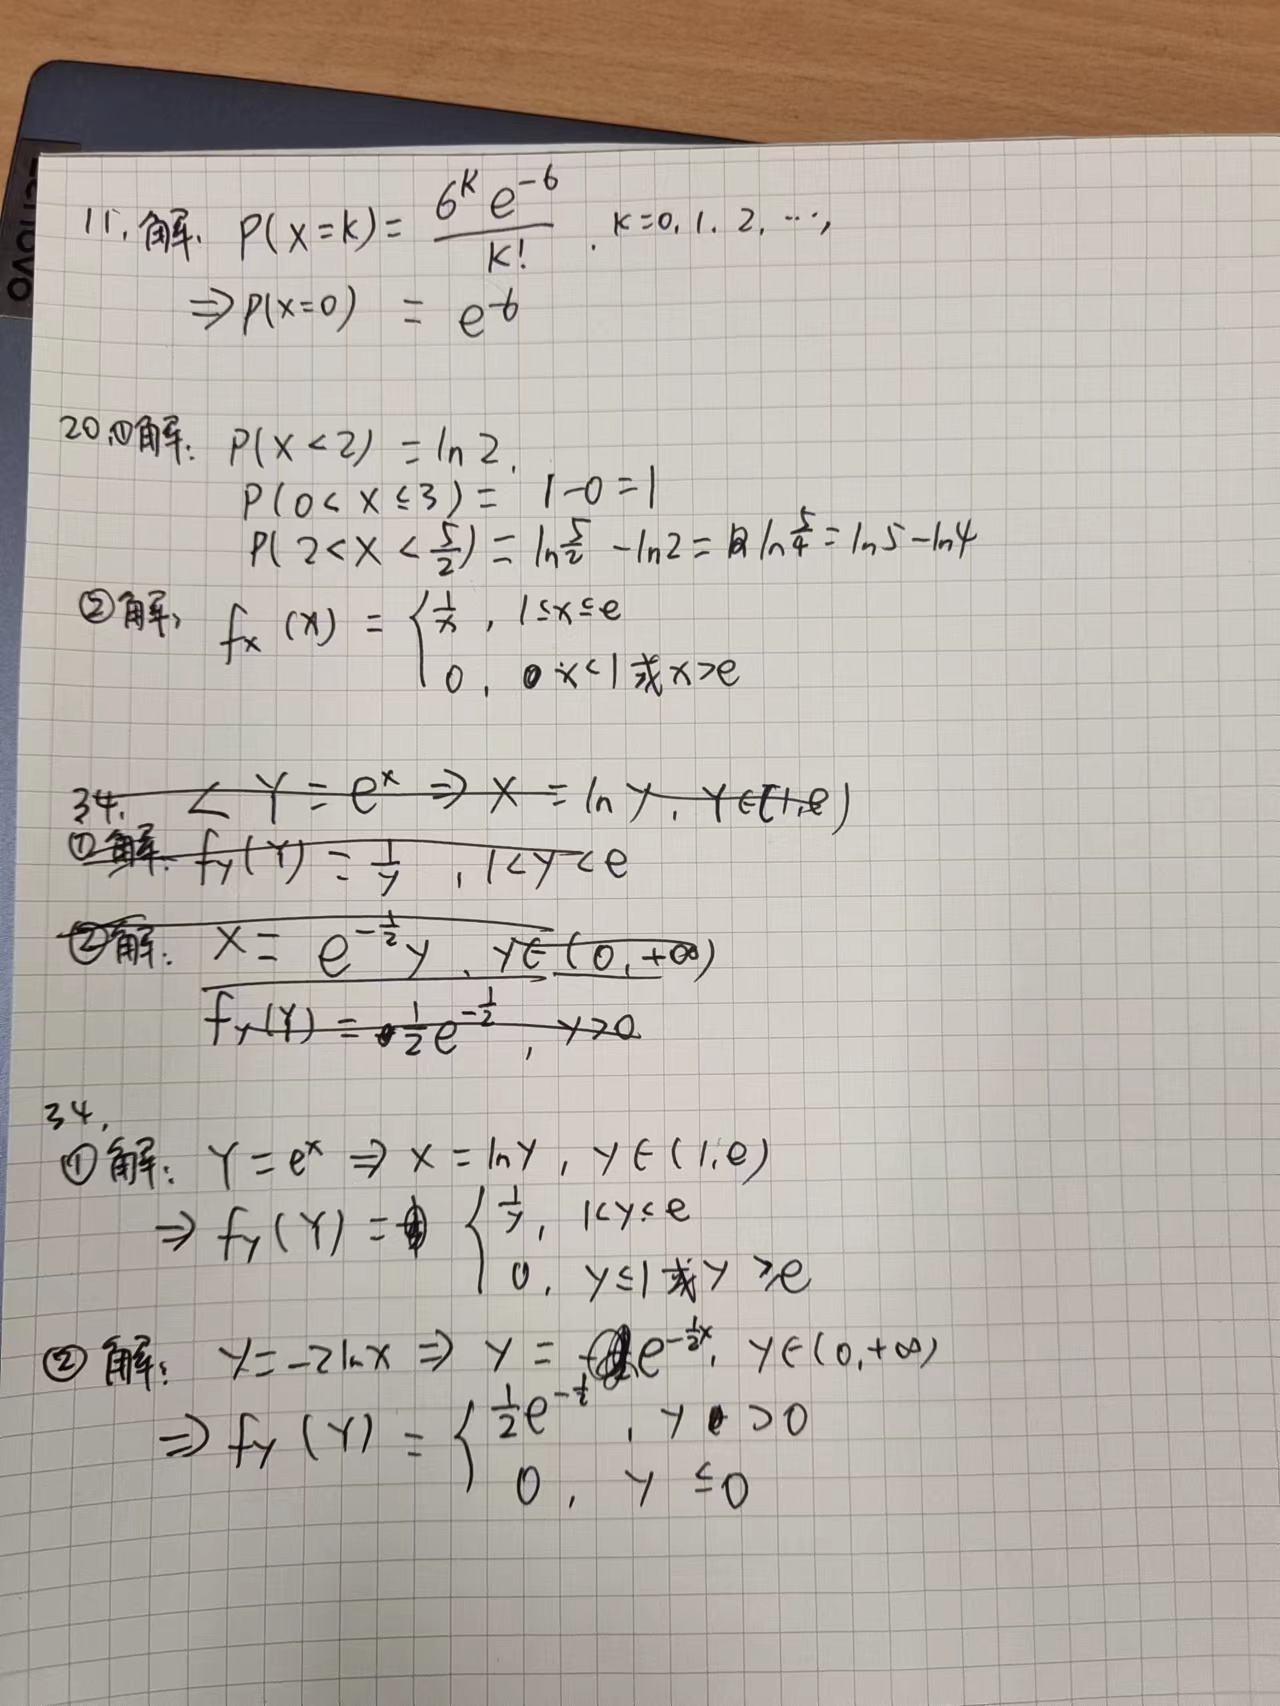 Lenovo
11. 解. P(X=k)= 6^k e^-6 / k! . k=0, 1, 2, ...,
⇒P(X=0) = e^-6
20.① 解: P(X<2) = ln 2,
P(0<X≤3) = 1-0=1
P(2<X<5/2) = ln 5/2 - ln2 = ln 5/4 = ln5-ln4
②解: fx (x) = { 1/x , 1≤x≤e
0 , x<1 或 x>e
34. Y = e^x ⇒ X = ln y, Y∈(1,e)
① 解. fy(Y) = 1/y , 1<y<e
②解: X = e^-1/2 y , y∈(0,+∞)
fy(Y) = 1/2 e^-1/2 , y>0
34.
①解: Y = e^x ⇒ X = lny , y∈(1,e)
⇒ fy(Y) = { 1/y, 1<y<e
0, y≤1 或 y ≥e
② 解: Y=-2lnx ⇒ y = e^-1/2x, y∈(0,+∞)
⇒ fy (Y) = { 1/2 e^-1/2 , y >0
0, y ≤0